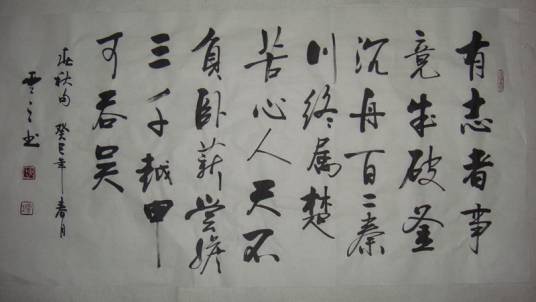 有志者事
竟成破釜
沉舟百二秦
川终属楚
苦心人天不
負卧薪尝膽
三千越甲
可吞吴
春秋句 癸巳年 春月